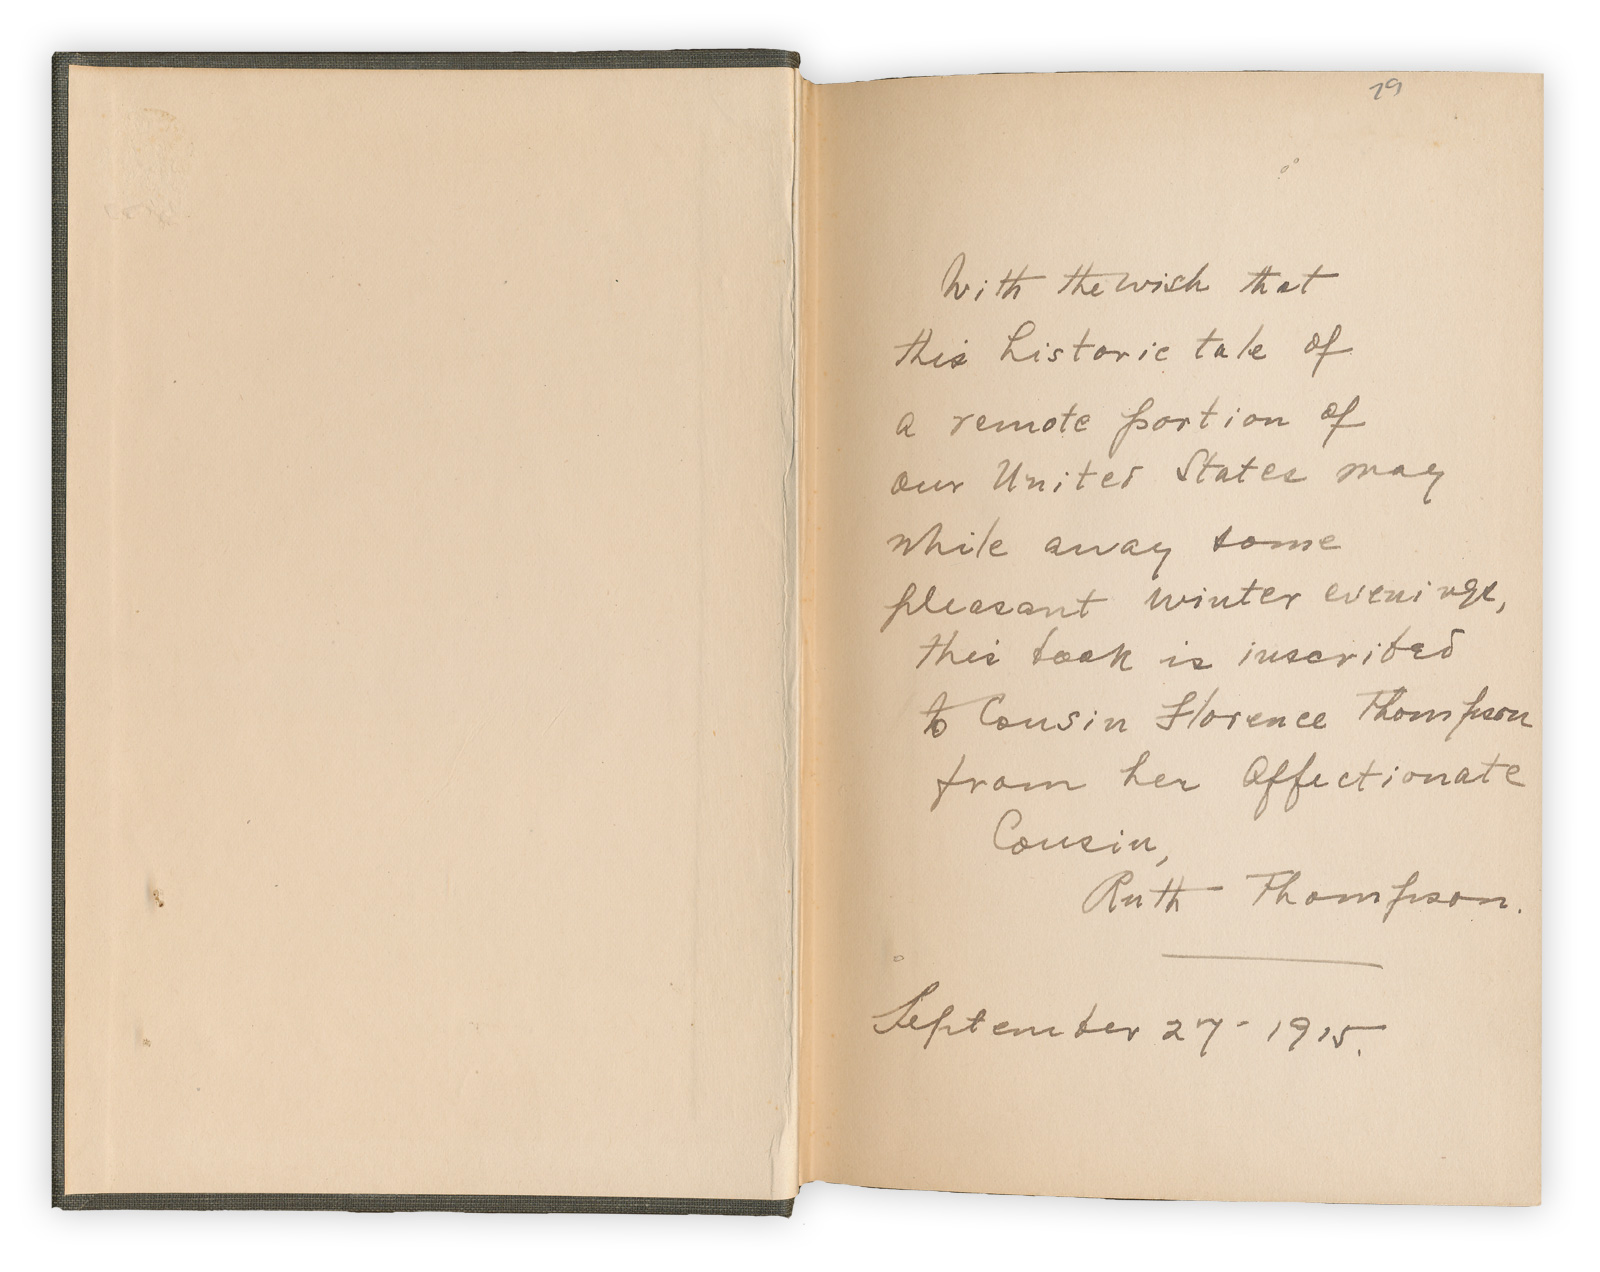 79
With the wish that
this historic tale of
a remote portion of
our United States may
while away some
pleasant winter evenings,
this book is inscribed
to Cousin Florence Thompson
from her Affectionate
Cousin,
Ruth Thompson.
September 27 - 1915.